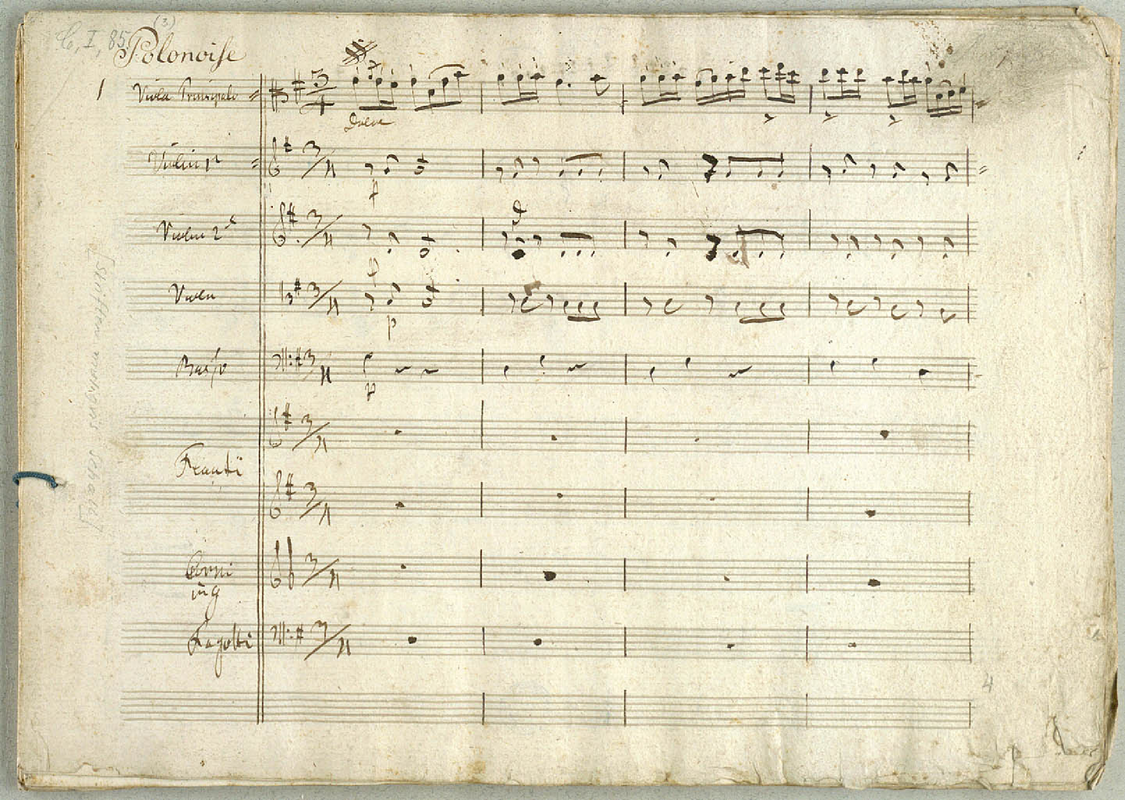 C, I, 85
(3)
Polonoise
1
Viola Principale
Dolce
Violin 1º
p
Violin 2d
p
Viola
p
Basso
p
Flauti
Corni
in g
Fagotti
4